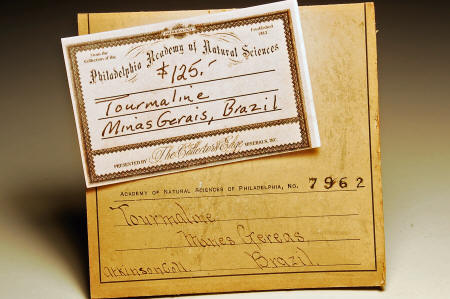 From the
Collection of the
Established
1812
Philadelphia Academy of Natural Sciences
$125.-
Tourmaline
Minas Gerais, Brazil
PRESENTED BY The Collector's Edge MINERALS, INC.
ACADEMY OF NATURAL SCIENCES OF PHILADELPHIA, NO. 7962
Tourmaline
Mines Gereas,
Atkinson Coll. Brazil.